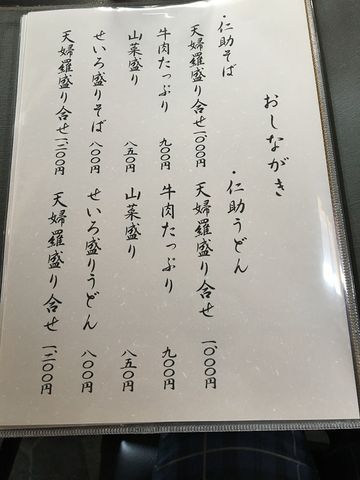 おしながき
・仁助そば
天婦羅盛り合せ 一、〇〇〇円
牛肉たっぷり 九〇〇円
山菜盛り 八五〇円
せいろ盛りそば 八〇〇円
天婦羅盛り合せ 一、二〇〇円
・仁助うどん
天婦羅盛り合せ 一、〇〇〇円
牛肉たっぷり 九〇〇円
山菜盛り 八五〇円
せいろ盛りうどん 八〇〇円
天婦羅盛り合せ 一、二〇〇円